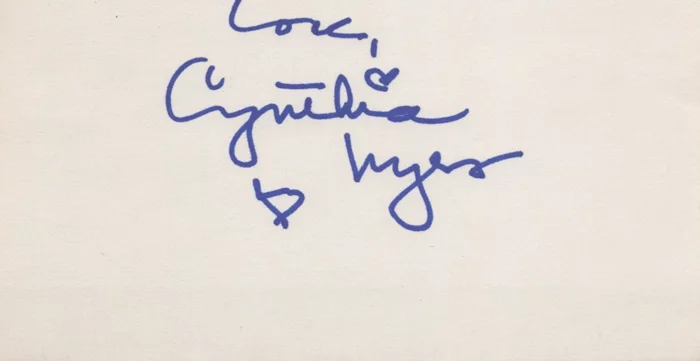 Love,
Cynthia
Myers